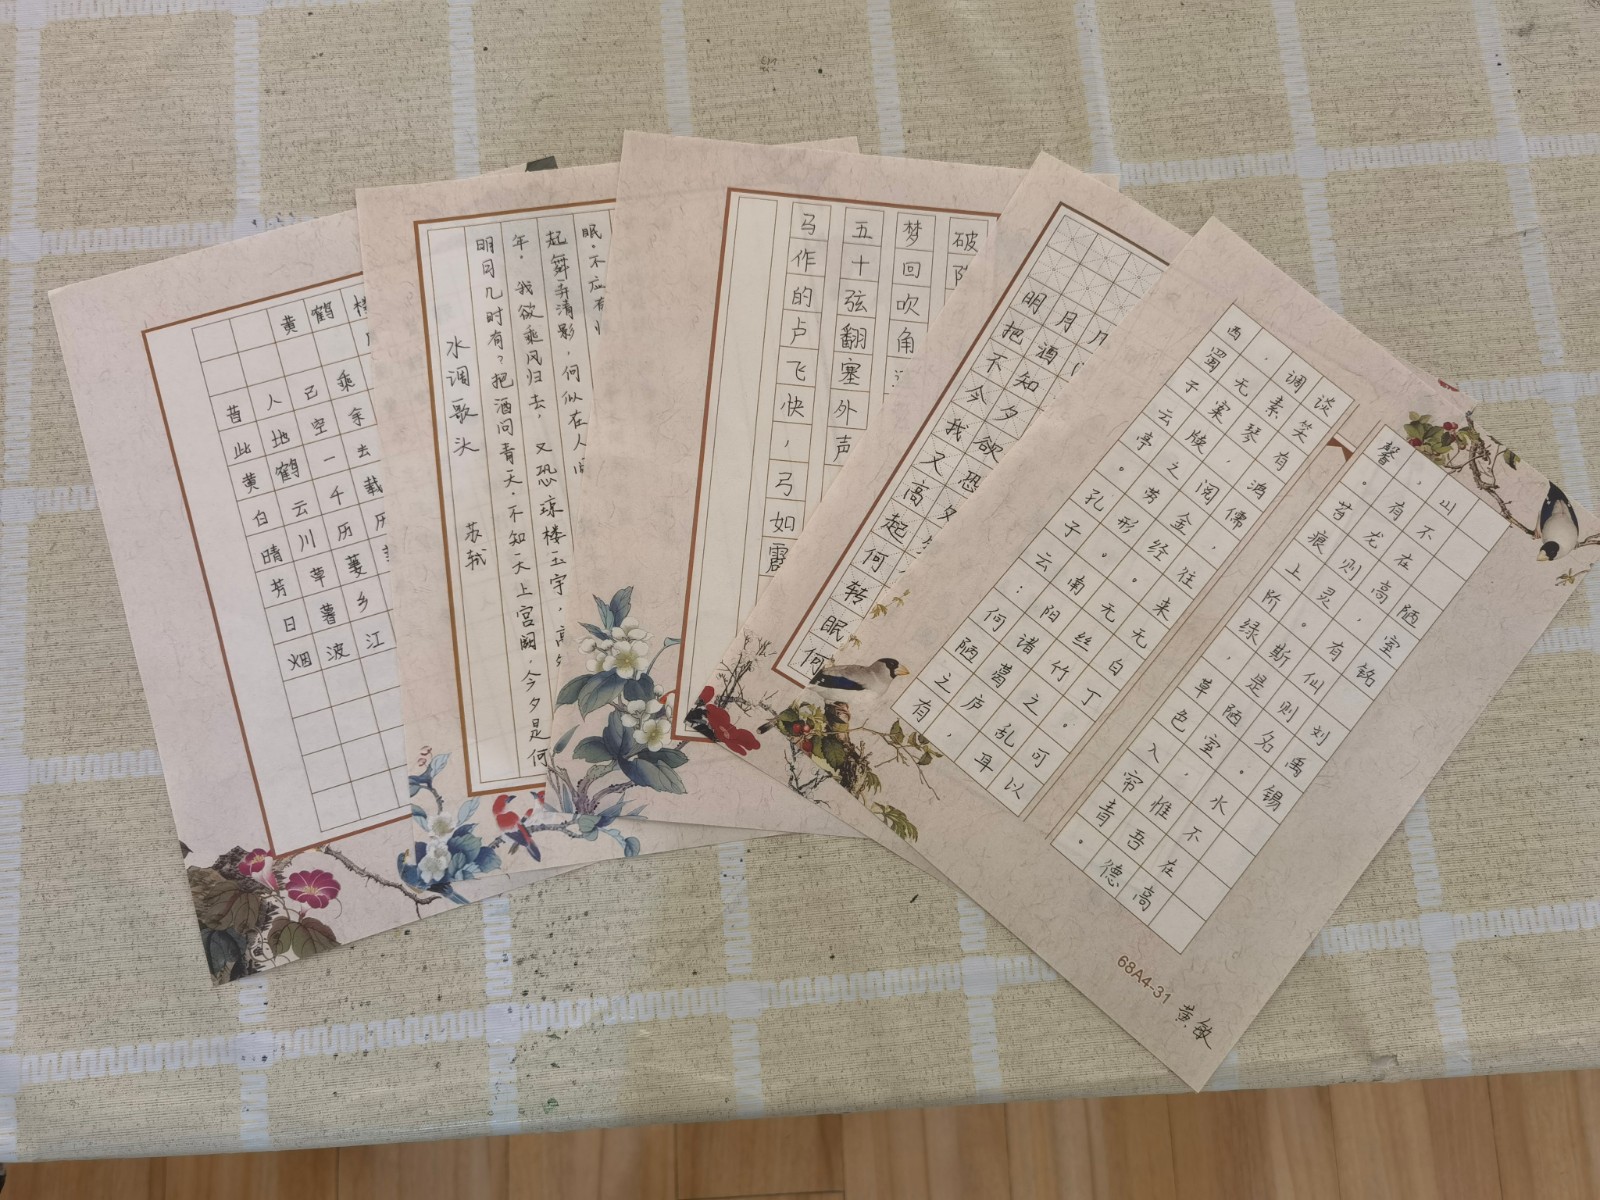 黄鹤楼
昔人已乘
此地空余
黄鹤一去
白云千载
晴川历历
芳草萋萋
日暮乡
烟波江
水调歌头 苏轼
明月几时有？把酒问青天。不知天上宫阙，今夕是何
年。我欲乘风归去，又恐琼楼玉宇，高
起舞弄清影，何似在人间
眠。不应有
破阵
梦回吹角
五十弦翻塞外声
马作的卢飞快，弓如霹
明月几
把酒
不知
今夕
我欲
又恐
高
起
何
转
眠
何
陋室铭 刘禹锡
山不在高，有仙则名。水不在高
，有龙则灵。斯是陋室，惟吾德
馨。苔痕上阶绿，草色入帘青。
谈笑有鸿儒，往来无白丁。可以
调素琴，阅金经。无丝竹之乱耳
，无案牍之劳形。南阳诸葛庐，
西蜀子云亭。孔子云：何陋之有
68A4-31
黄敏